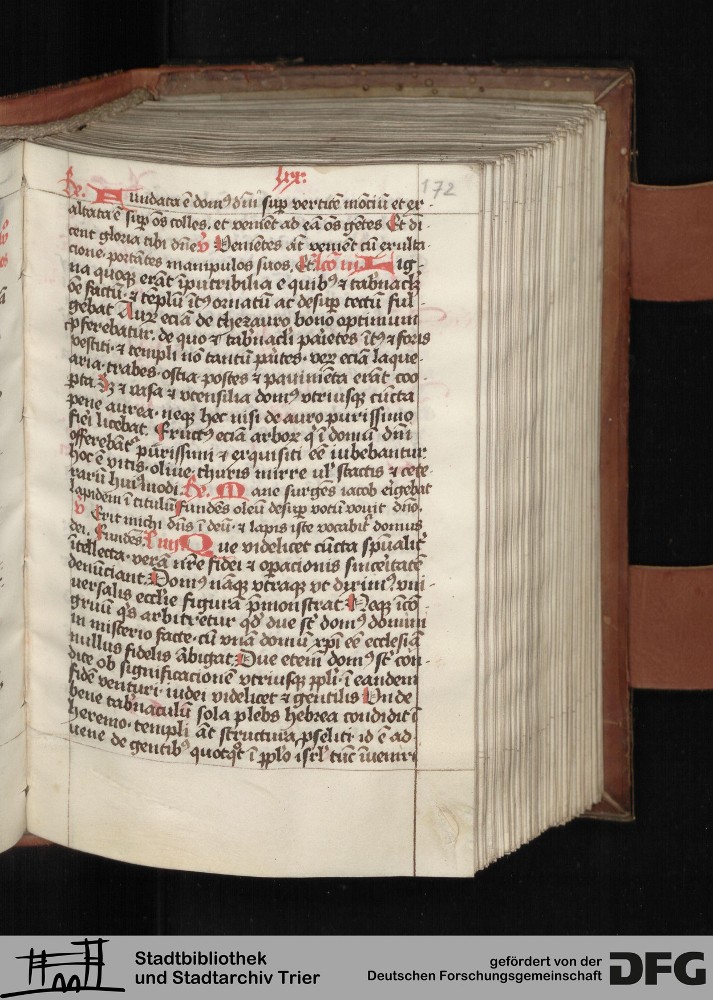 lix:
172
Re. Fundata ē domꝰ dn̄i sup verticē mōtiū et ex-
altata ē sup oēs colles. et veniēt ad eā oēs gētes Et di-
cent gloria tibi dn̄e v̄ Veniētes at̄ veniēt cū exulta-
cione. portātes manipulos suos. Et Lcō iii Lig-
na quoqꝫ erāt īputribilia e quibꝰ ⁊ tab̄nacl̄m
ōe factū. ⁊ tēplū ītꝰ ornatū ac desup tectū ful-
gebat Auꝝ eciā de thezauro bono optimum
ꝓferebatur. de quo ⁊ tab̄nacl̄i parietes ītꝰ ⁊ foris
vestiti. ⁊ templi nō tantū p̄ites. veꝝ eciā laque-
aria. trabes. ostia. postes ⁊ pavimēta erāt coo-
pta. Sꝫ ⁊ vasa ⁊ vtensilia domꝰ vtriusqꝫ cūcta
pene aurea. neqꝫ hec nisi de auro purissimo
fieri licebat. Fructꝰ eciā arboꝝ q̄ ī domū dn̄i
offerebāt̄ᷣ purissimi ⁊ exquisiti eē iubebantur
hoc ē vitis. olive. thuris mirre vl̄ stactis ⁊ cete-
rarū huiꝰmodi. Re. Mane surgēs iacob erigebat
lapidem ī titulū fundēs oleū desup votū vovit dn̄o.
v̄ Erit michi dn̄s ī deū. ⁊ lapis iste vocabit̄ domus
dei. Fundēs. L iiii Que videlicet cūcta sp̄ualit̄
ītellecta. verā nr̄e fidei ⁊ oꝑacionis sinceritatē
denūciant. Domꝰ nāqꝫ vtraqꝫ vt diximꝰ. vni-
versalis ecclīe figurā p̄monstrat. Neqꝫ īcō-
gruū q̇s arbitretur qd̄ due st̄ domꝰ domini
in misterio facte. cū vnā domū xp̄i eē ecclesiā
nullus fidelis ābigat. Due etem̄ domꝰ st̄ con-
dite ob significacionē vtriusqꝫ ppl̄i. ī eandem
fidē venturi. iudei videlicet ⁊ gentilis Unde
bene tab̄naculū sola plebs hebrea condidit ī
heremo. templi at̄ structura ꝓseliti. id ē ad-
vene de gentibꝰ quotqt̄ ī ppl̄o isrl̄ tūc īvenirī
Stadtbibliothek
und Stadtarchiv Trier
gefördert von der
Deutschen Forschungsgemeinschaft
DFG